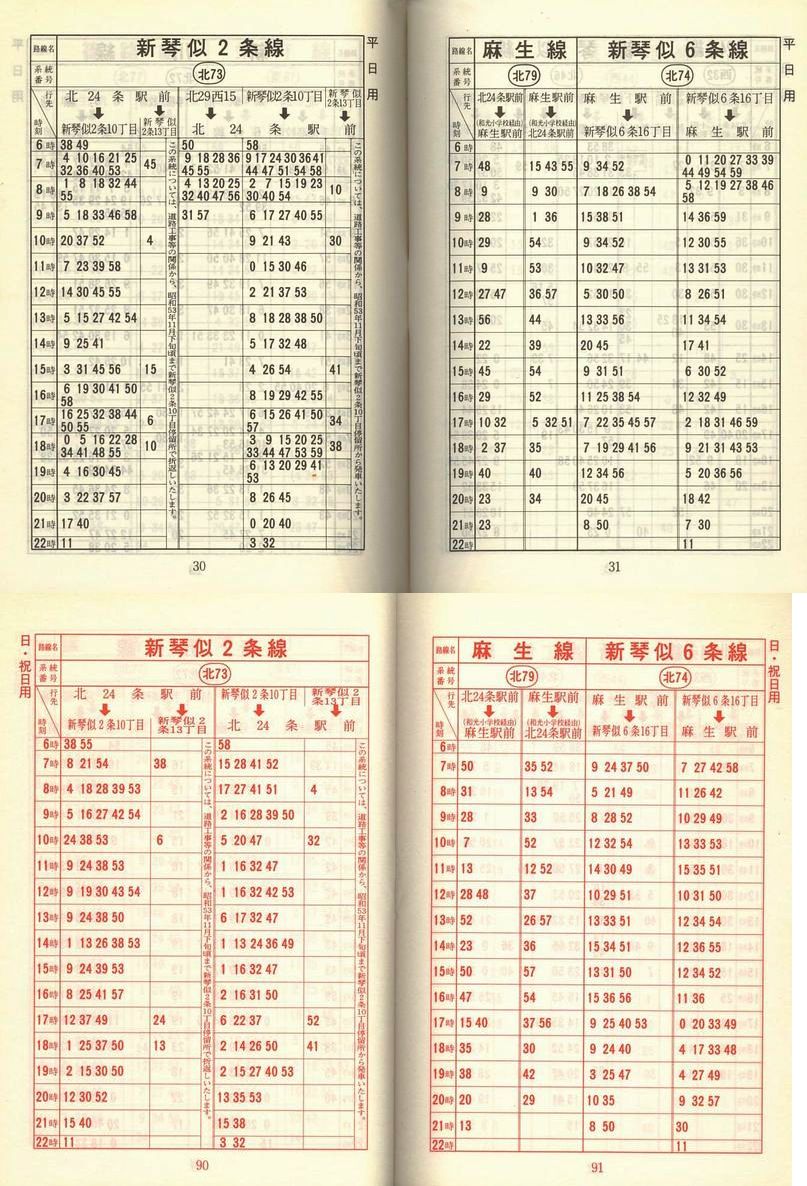 平日用
路線名 新琴似2条線
系統番号 北73
行先 時刻
北24条駅前 → 新琴似2条10丁目
新琴似2条13丁目
北29西15 新琴似2条10丁目 → 北24条駅前
新琴似2条13丁目
6時 38 49 50 58
7時 4 10 16 21 25 45 9 18 28 36 9 17 24 30 36 41
32 36 40 53 45 55 44 47 51 54 58
8時 1 8 18 32 44 4 13 20 25 2 7 15 19 23 10
55 32 40 47 56 30 40 54
9時 5 18 33 46 58 31 57 6 17 27 40 55
10時 20 37 52 4 9 21 43 30
11時 7 23 39 58 0 15 30 46
12時 14 30 45 55 2 21 37 53
13時 5 15 27 42 54 8 18 28 38 50
14時 9 25 41 5 17 32 48
15時 3 31 45 56 15 4 26 54 41
16時 6 19 30 41 50 8 19 29 42 55
58
17時 16 25 32 38 44 6 6 15 26 41 50 34
50 55 57
18時 0 5 16 22 28 10 3 9 15 20 25 38
34 41 48 55 33 44 47 53 59
19時 4 16 30 45 6 13 20 29 41
53
20時 3 22 37 57 8 26 45
21時 17 40 0 20 40
22時 11 3 32
この系統については、道路工事等の関係から、昭和53年11月下旬頃まで新琴似2条10丁目停留所で折返しいたします。
この系統については、道路工事等の関係から、昭和53年11月下旬頃まで新琴似2条10丁目停留所から発車いたします。
30
平日用
路線名 麻生線 新琴似6条線
系統番号 北79 北74
行先 時刻
北24条駅前 → (和光小学校経由) 麻生駅前
麻生駅前 → (和光小学校経由) 北24条駅前
麻生駅前 → 新琴似6条16丁目
新琴似6条16丁目 → 麻生駅前
6時
7時 48 15 43 55 9 34 52 0 11 20 27 33 39
44 49 54 59
8時 9 9 30 7 18 26 38 54 5 12 19 27 38 46
58
9時 28 1 36 15 38 51 14 36 59
10時 29 54 9 34 52 12 30 55
11時 9 53 10 32 47 13 31 53
12時 27 47 36 57 5 30 50 8 26 51
13時 56 44 13 33 56 11 34 54
14時 22 39 20 45 17 41
15時 45 54 9 31 51 6 30 52
16時 29 52 11 25 38 54 12 32 49
17時 10 32 5 32 51 7 22 35 45 57 2 18 31 46 59
18時 2 37 35 7 19 29 41 56 9 21 31 43 53
19時 40 40 12 34 56 5 20 36 56
20時 23 34 20 45 18 42
21時 23 8 50 7 30
22時 11
31
日・祝日用
路線名 新琴似2条線
系統番号 北73
行先 時刻
北24条駅前 → 新琴似2条10丁目
新琴似2条13丁目
新琴似2条10丁目 新琴似2条13丁目 → 北24条駅前
6時 38 55 58
7時 8 21 54 38 15 28 41 52
8時 4 18 28 39 53 17 27 41 51 4
9時 5 16 27 42 54 2 16 28 39 50
10時 24 38 53 6 5 20 47 32
11時 9 24 38 53 1 16 32 47
12時 9 19 30 43 54 1 16 32 42 53
13時 9 24 38 50 6 17 32 47
14時 1 13 26 38 53 1 13 24 36 49
15時 9 24 39 53 1 16 32 47
16時 8 25 41 57 2 16 31 50
17時 12 37 49 24 6 22 37 52
18時 1 25 37 50 13 2 14 26 50 41
19時 2 15 30 50 2 15 27 40 53
20時 12 30 52 13 35 53
21時 15 40 15 38
22時 11 3 32
この系統については、道路工事等の関係から、昭和53年11月下旬頃まで新琴似2条10丁目停留所で折返しいたします。
この系統については、道路工事等の関係から、昭和53年11月下旬頃まで新琴似2条10丁目停留所から発車いたします。
90
日・祝日用
路線名 麻生線 新琴似6条線
系統番号 北79 北74
行先 時刻
北24条駅前 → (和光小学校経由) 麻生駅前
麻生駅前 → (和光小学校経由) 北24条駅前
麻生駅前 → 新琴似6条16丁目
新琴似6条16丁目 → 麻生駅前
6時
7時 50 35 52 9 24 37 50 7 27 42 58
8時 31 13 54 5 21 49 11 26 42
9時 28 33 8 28 52 10 29 49
10時 7 52 12 32 54 13 33 53
11時 13 12 52 14 30 49 15 35 51
12時 28 48 37 10 29 51 10 31 50
13時 52 26 57 13 33 51 12 34 54
14時 23 36 15 34 51 12 36 55
15時 50 57 13 31 50 12 34 52
16時 47 54 15 36 56 11 36
17時 15 40 37 56 9 25 40 53 0 20 33 49
18時 35 30 9 24 40 4 17 33 48
19時 38 42 3 25 47 4 27 49
20時 20 29 10 35 9 32 57
21時 13 8 50 30
22時 11
91